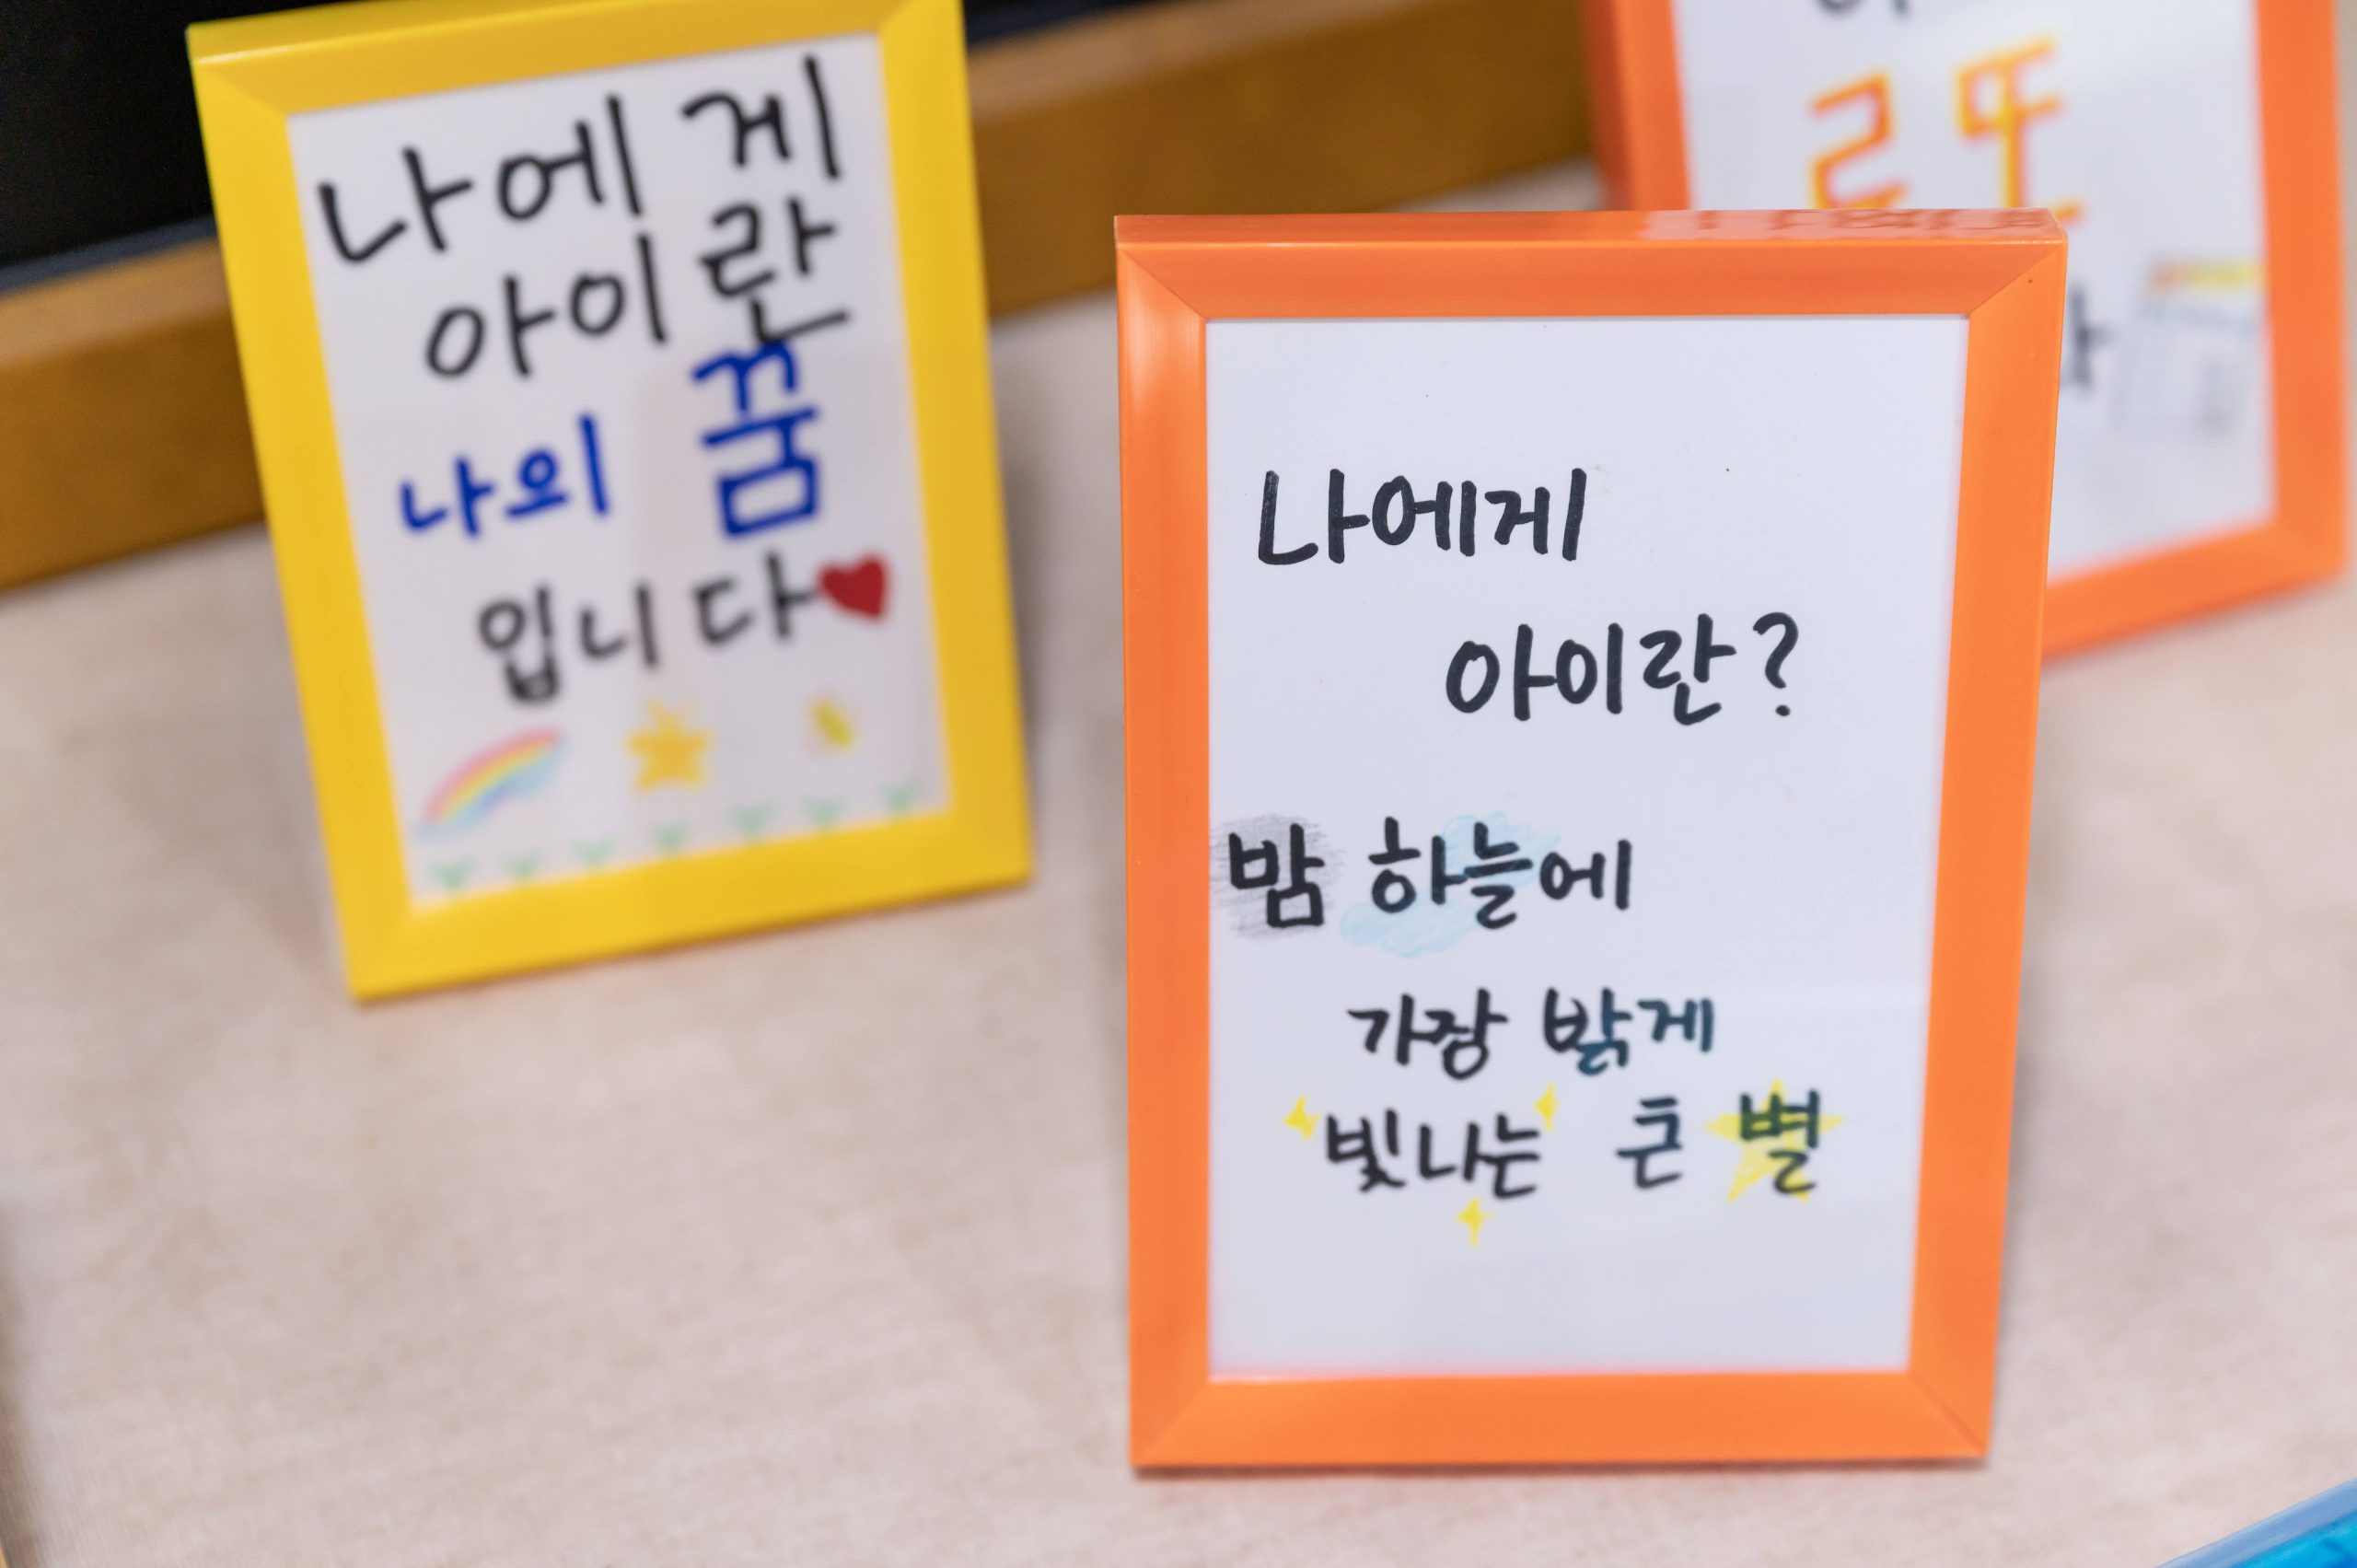 나에게
아이란
나의 꿈
입니다
나에게
아이란?
밤 하늘에
가장 밝게
빛나는 큰 별
로또